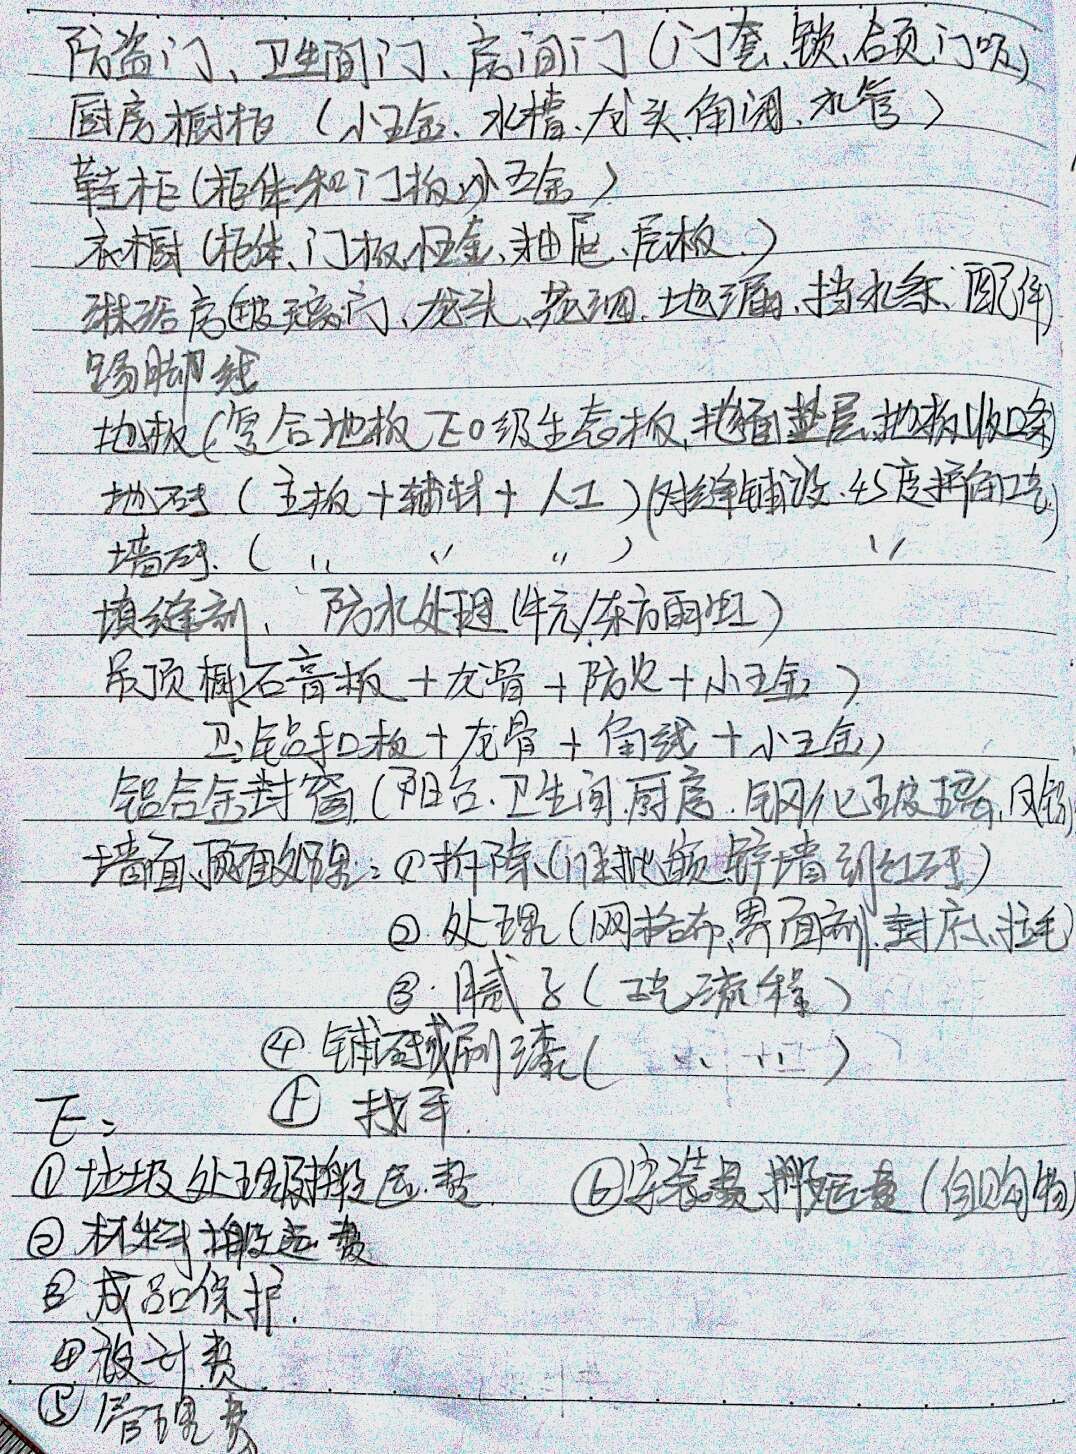 防盗门、卫生间门、房间门(门套、锁、合页、门吸)
厨房橱柜 (小五金、水槽、龙头、角阀、水管)
鞋柜(柜体和门板、小五金)
衣橱(柜体、门板、小五金、抽屉、层板、)
淋浴房(玻璃门、龙头、花洒、地漏、挡水条、配件)
踢脚线
地板(复合地板 E0级生态板、地面垫层、地板收口条
地砖 (主板+辅材+人工)(对缝铺设、45度护角工艺)
墙砖. ( 〃 〃 〃 ) 〃
填缝剂、 防水处理(牛元/东方雨虹)
吊顶 橱:石膏板+龙骨+防火+小五金)
卫:铝扣板+龙骨+角线+小五金)
铝合金封窗(阳台、卫生间、厨房、钢化玻璃、
墙面、顶面处理:①拆除(
②处理(网格布、界面剂、封底、拉毛)
③.腻子(工艺流程)
④铺砖或刷漆( 〃 〃 )
上 找平.
E:
①垃圾处理及搬运费 ⑥安装费、搬运费(自购物)
②材料搬运费
③成品保护.
④设计费.
⑤管理费